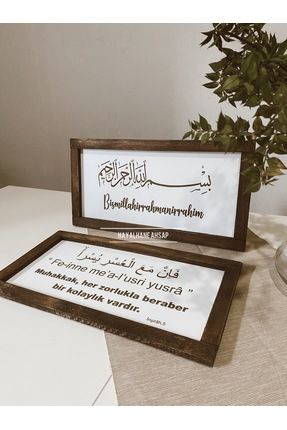 بِسْمِ اللَّهِ الرَّحْمَنِ الرَّحِيمِ
Bismillahirrahmanirrahim
HAYALHANEAHSAP
فَإِنَّ مَعَ الْعُسْرِ يُسْرًا
" Fe-inne me'a-l'usri yusrâ "
Muhakkak, her zorlukla beraber
bir kolaylık vardır.
İnşirâh,5